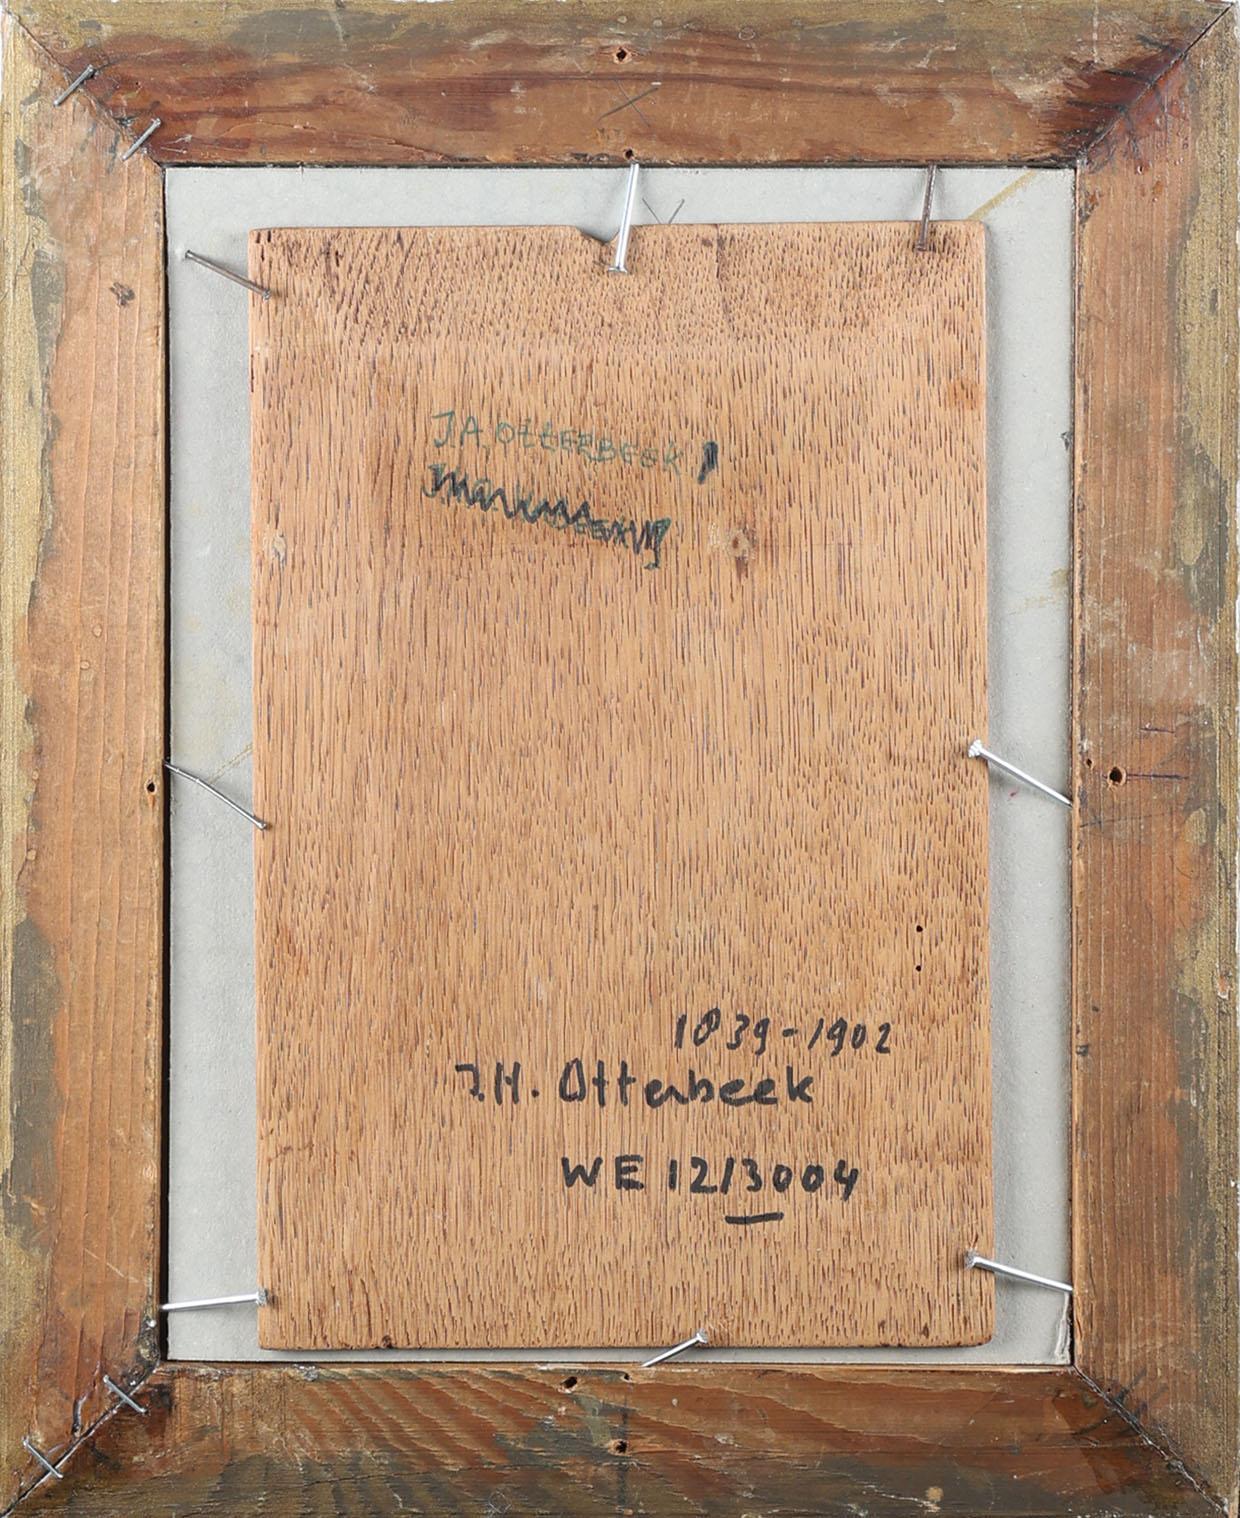 J.A. OttERBEEK
1839-1902
J.H. Otterbeek
WE 12/3004